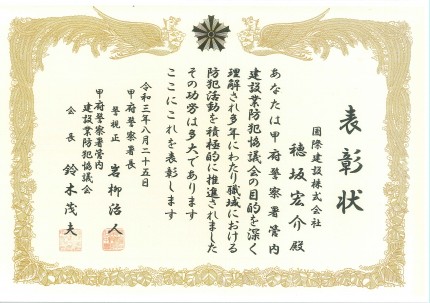 表彰状
国際建設株式会社
穂坂宏介 殿
あなたは甲府警察署管内
建設業防犯協議会の目的を深く
理解され多年にわたり職域における
防犯活動を積極的に推進されました
その功労は多大であります
ここにこれを表彰します
令和三年八月二十五日
甲府警察署長
警視正 岩柳治人
甲府警察署管内
建設業防犯協議会
会長 鈴木茂夫